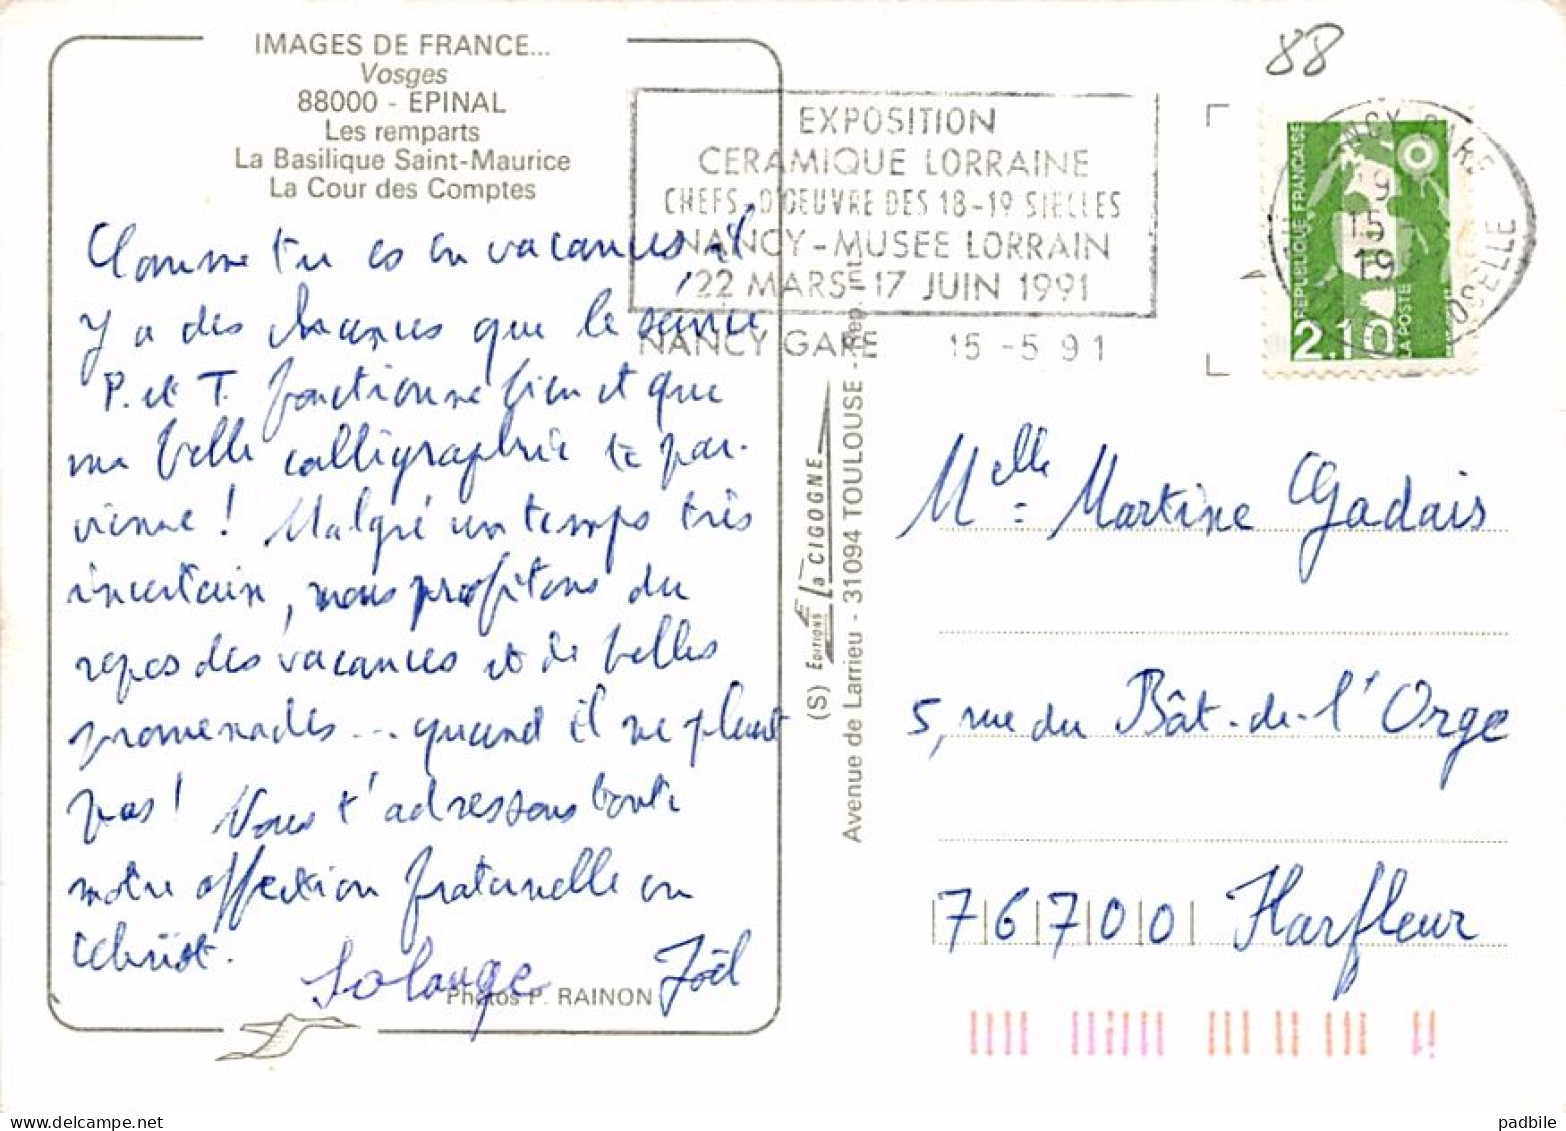 IMAGES DE FRANCE...
Vosges
88000 - EPINAL
Les remparts
La Basilique Saint-Maurice
La Cour des Comptes
Comme tu es en vacances, il
y a des chances que le service
P. et T. fonctionne bien et que
ma belle calligraphie te par-
vienne ! Malgré un temps très
incertain, nous profitons du
repos des vacances et de belles
promenades... quand il ne pleut
pas ! Nous t'adressons toute
notre affection fraternelle en
Christ.
Solange Joël
Photos P. RAINON
(S) EDITIONS La CIGOGNE
Avenue de Larrieu - 31094 TOULOUSE - Rep. Int.
88
EXPOSITION
CERAMIQUE LORRAINE
CHEFS-D'OEUVRE DES 18-19 SIECLES
NANCY-MUSEE LORRAIN
22 MARS-17 JUIN 1991
NANCY GARE 15 -5 91
NANCY GARE
19
15 -5
19
MOSELLE
REPUBLIQUE FRANÇAISE
2.10
LA POSTE
Melle Martine Gadais
5, rue du Bât-de-l'Orge
76700 Harfleur
padbile